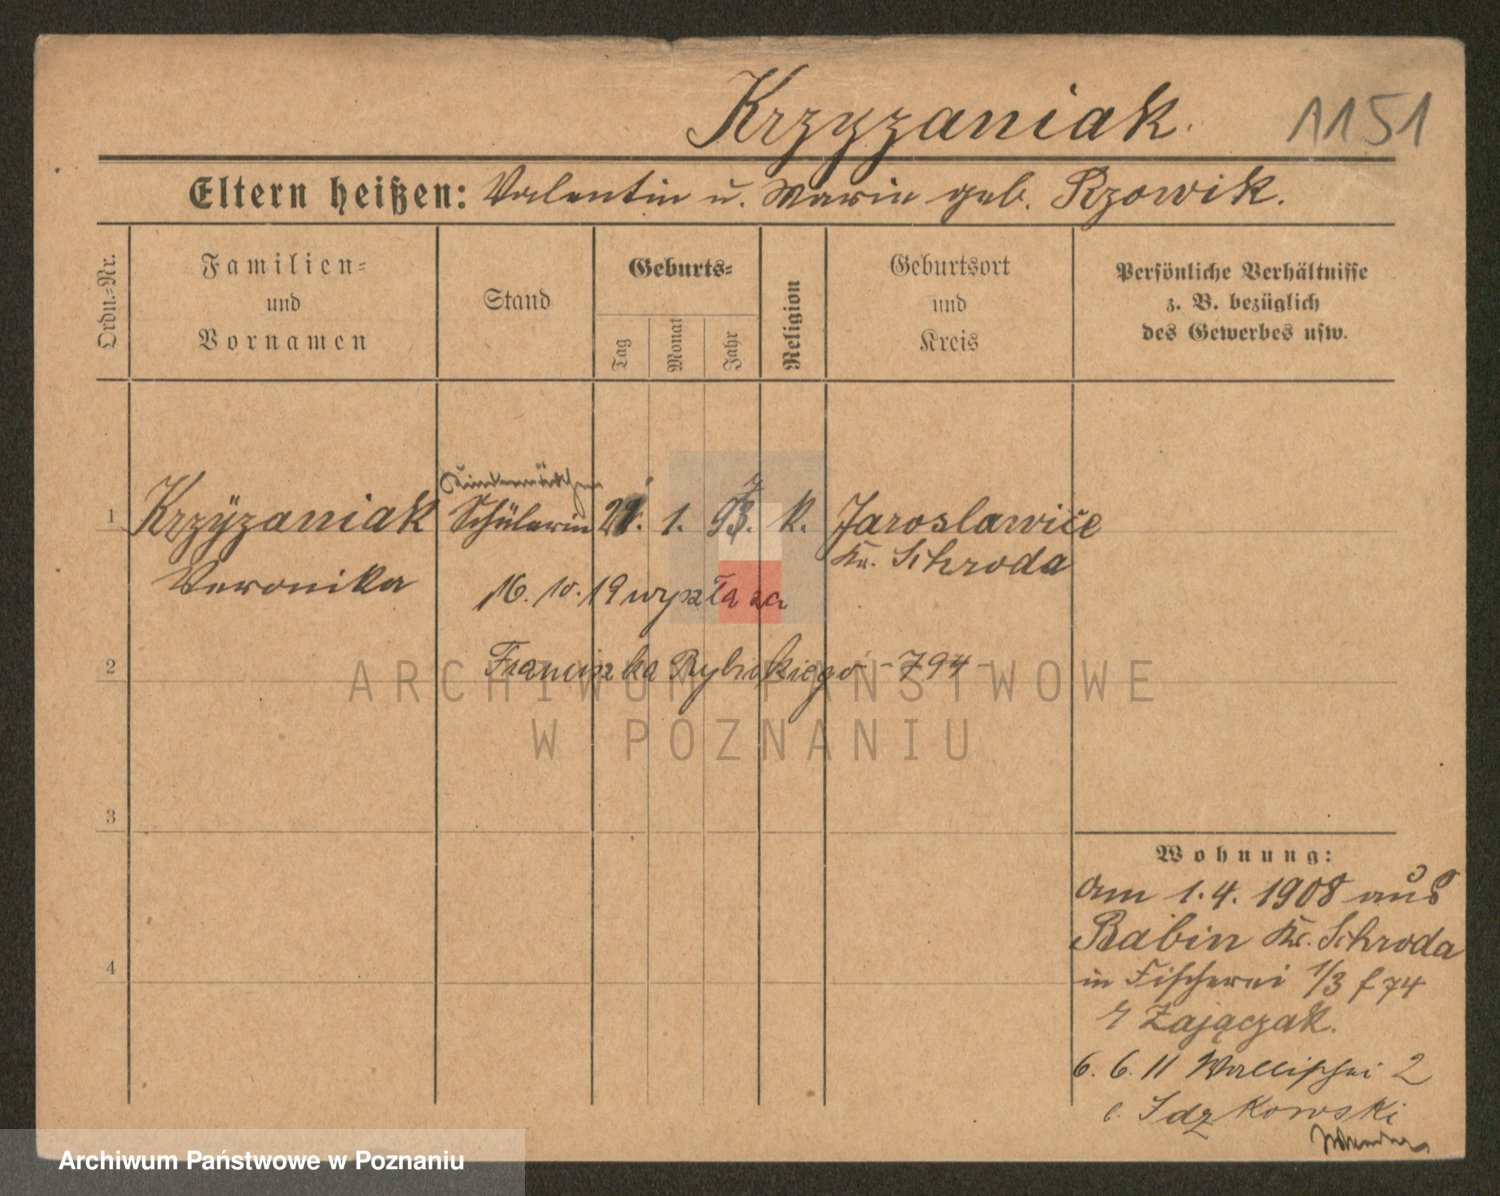 Krzyzaniak. 1151
Eltern heißen: Valentin u. Marie geb. Rzowik.
Ordn.-Nr.
Familien-
und
Vornamen
Stand
Geburts-
Tag
Monat
Jahr
Religion
Geburtsort
und
Kreis
Persönliche Verhältnisse
z. B. bezüglich
des Gewerbes usw.
Kindermädchen
1 Krzÿzaniak Schülerin 21. 1. 93. K. Jaroslawice
Kr. Schroda
Veronika
16. 10. 19 wyszła za
2 Franciszka Rybickiego - 794 -
3
4
Wohnung:
am 1. 4. 1908 aus
Babin Kr. Schroda
in Fischerei 1/3 f 74
Zajączak.
6. 6. 11 Wallischei 2
Idzkowski
ARCHIWUM PAŃSTWOWE
W POZNANIU
Archiwum Państwowe w Poznaniu